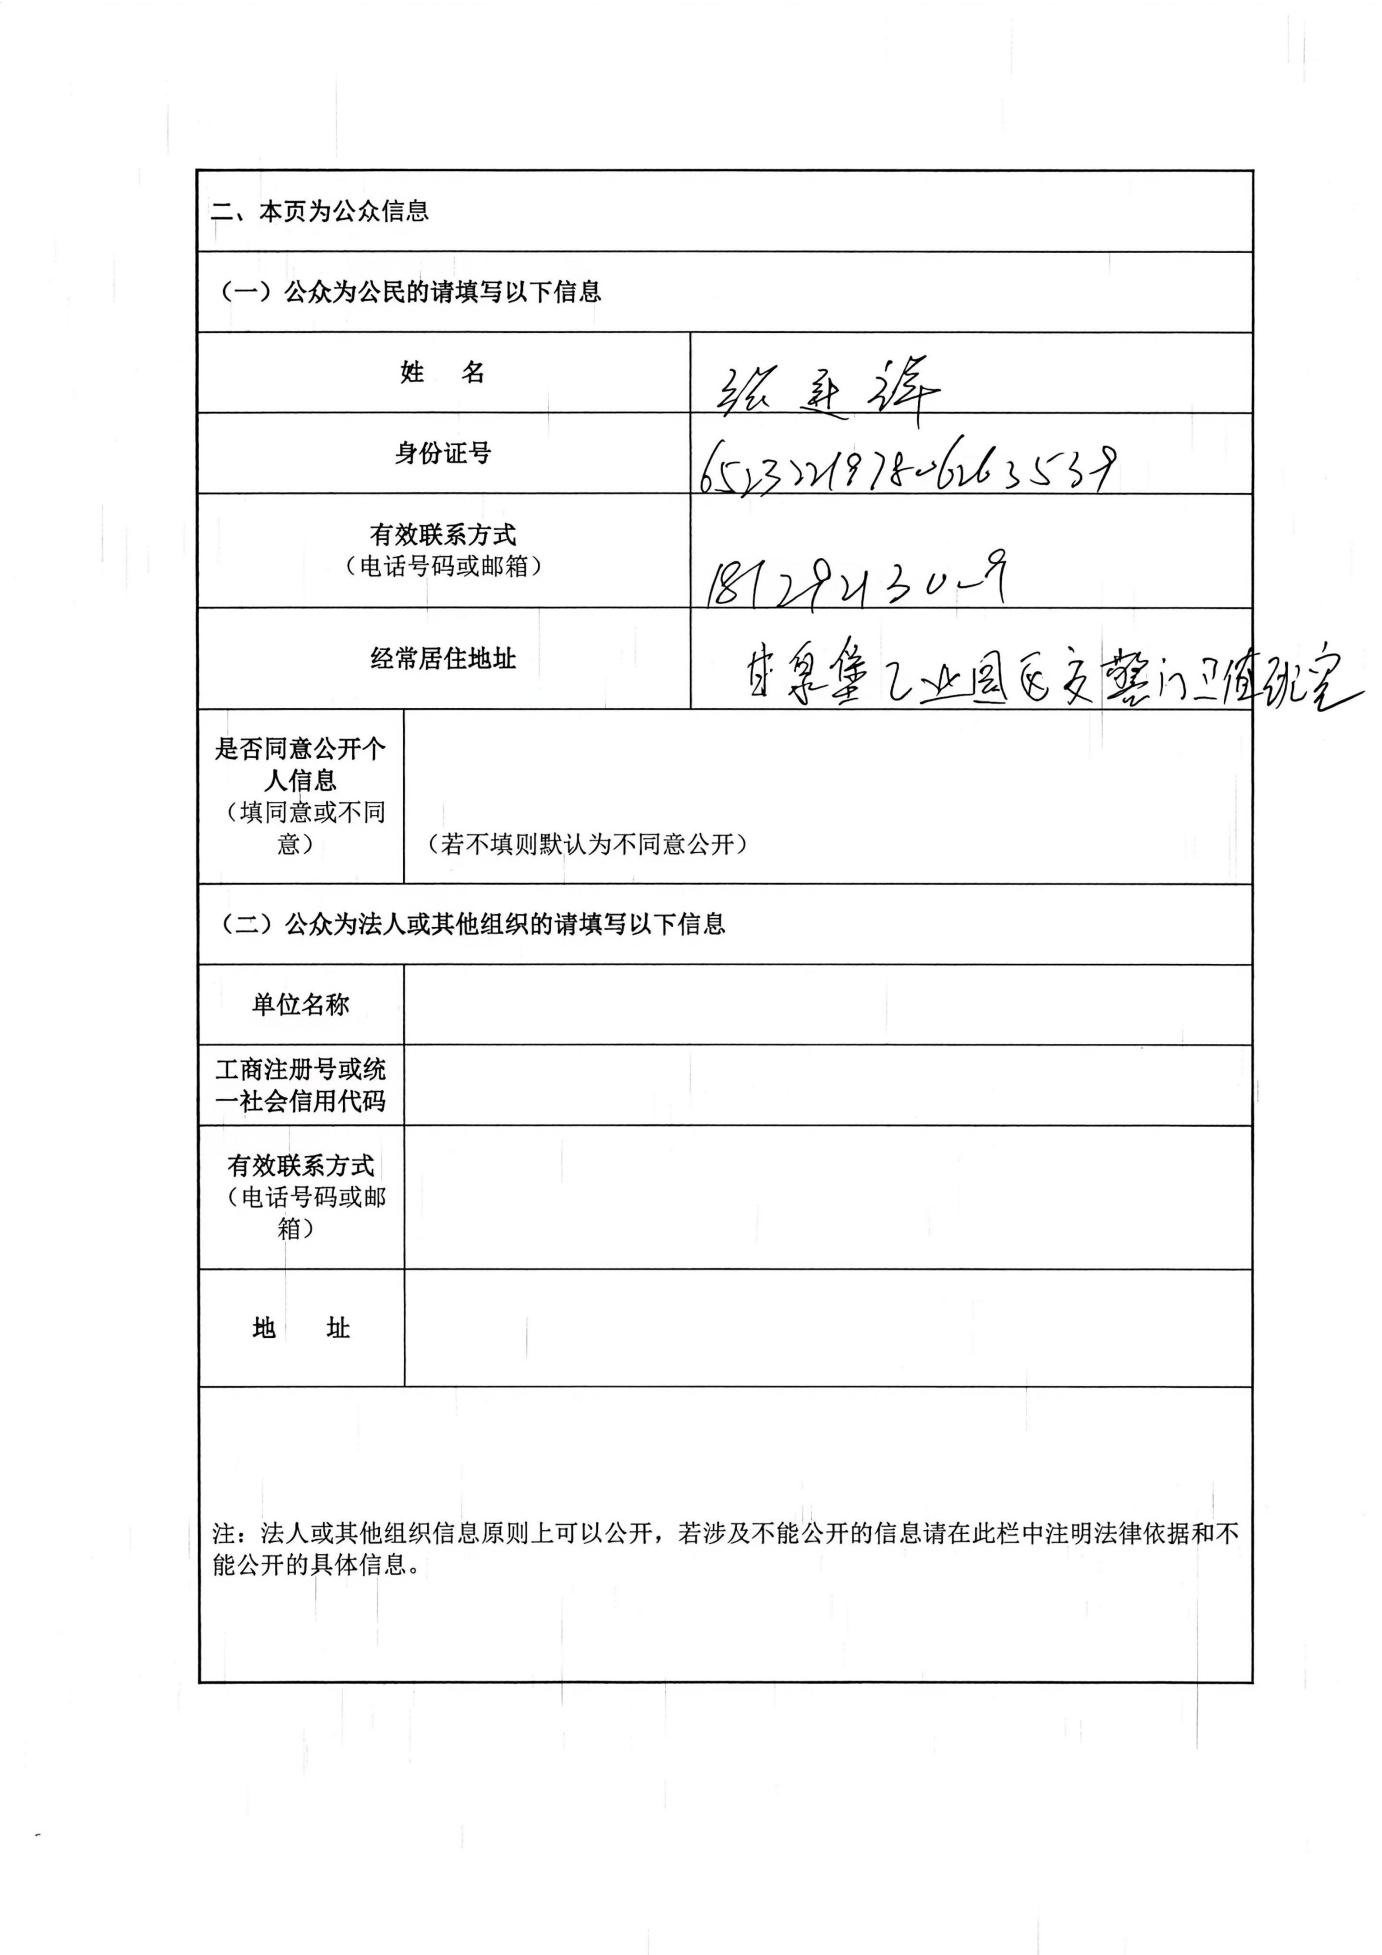 二、本页为公众信息
（一）公众为公民的请填写以下信息
姓 名
张
身份证号
652322197806263539
有效联系方式
（电话号码或邮箱）
经常居住地址
甘泉堡工业园区交警门卫值班室
是否同意公开个
人信息
（填同意或不同
意）
（若不填则默认为不同意公开）
（二）公众为法人或其他组织的请填写以下信息
单位名称
工商注册号或统
一社会信用代码
有效联系方式
（电话号码或邮
箱）
地 址
注：法人或其他组织信息原则上可以公开，若涉及不能公开的信息请在此栏中注明法律依据和不
能公开的具体信息。